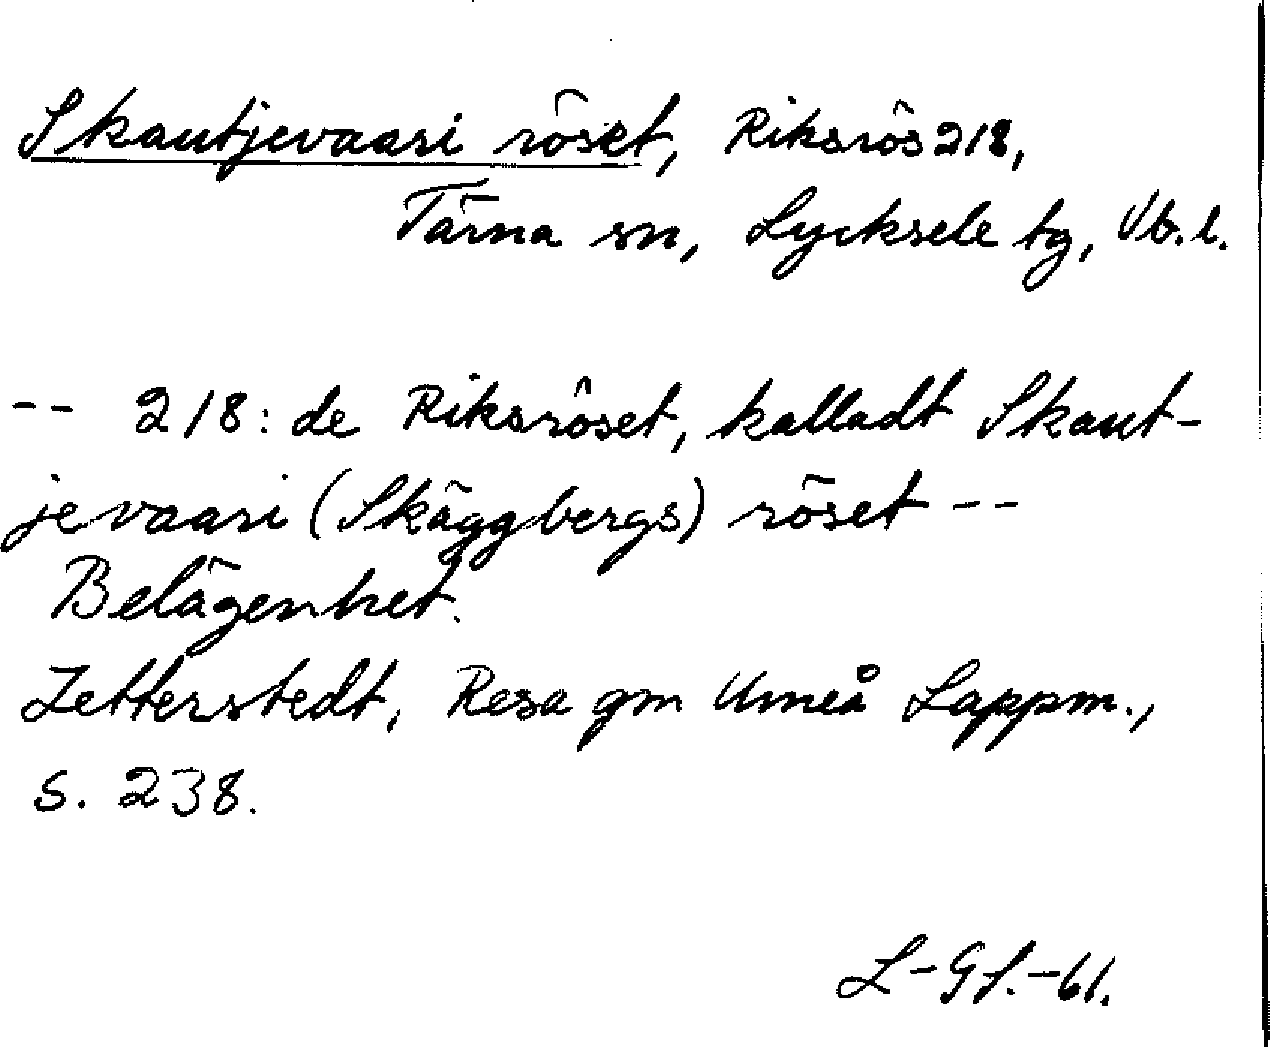 Skautjevaari röset, Riksrös 218,
Tärna sn, Lycksele tg, Vb. l.
-- 218: de Riksröset, kalladt Skaut-
jevaari (Skäggbergs) röset --
Belägenhet.
Zetterstedt, Resa gm Umeå Lappm.,
s. 238.
L-GL.-61.